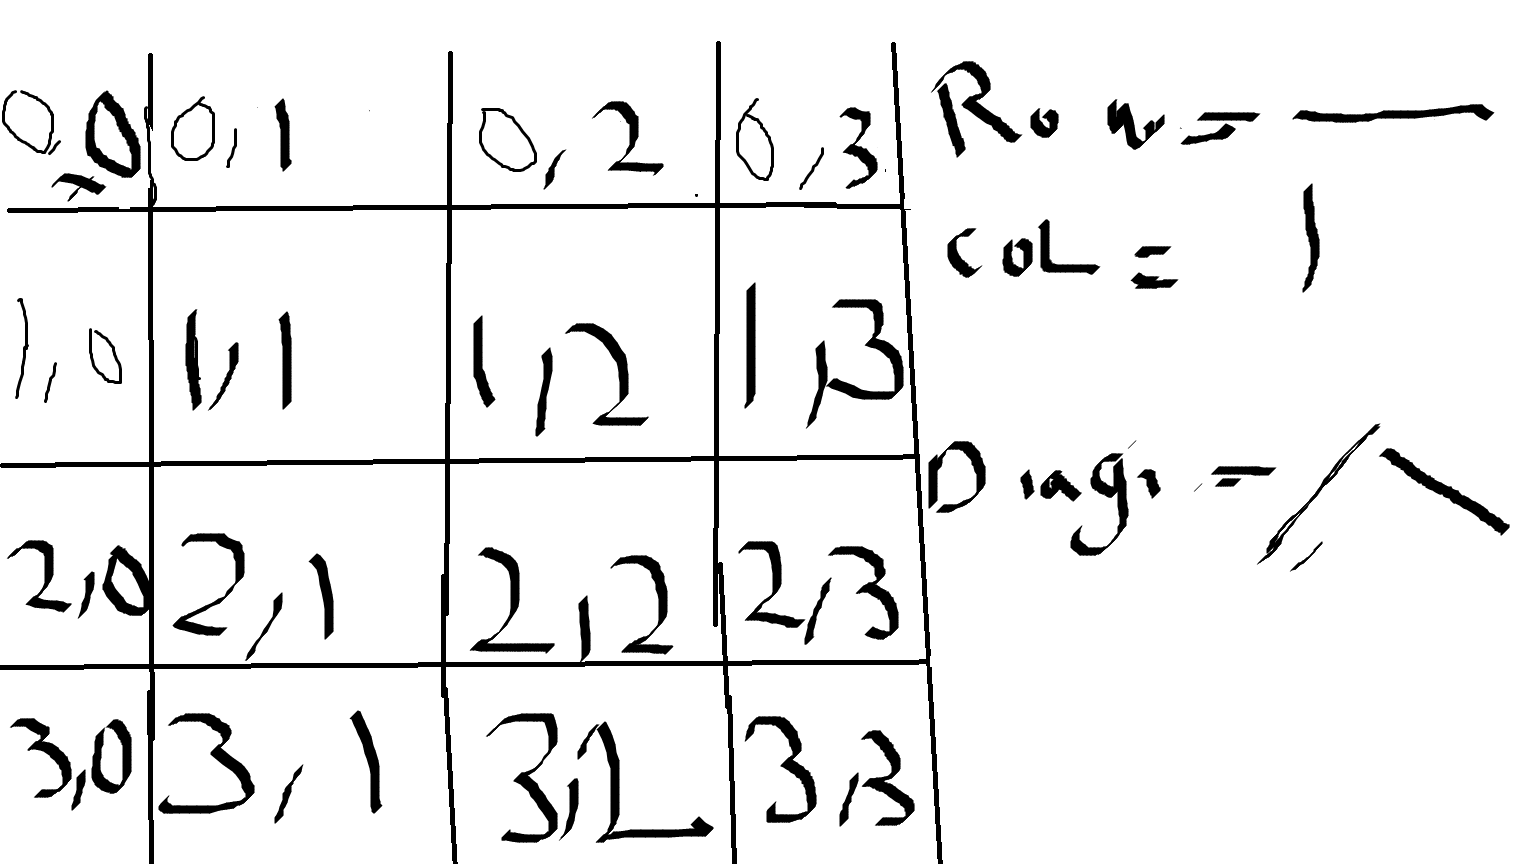 0,0 0,1 0,2 0,3
1,0 1,1 1,2 1,3
2,0 2,1 2,2 2,3
3,0 3,1 3,2 3,3
Row = —
COL = |
Diagi = / \